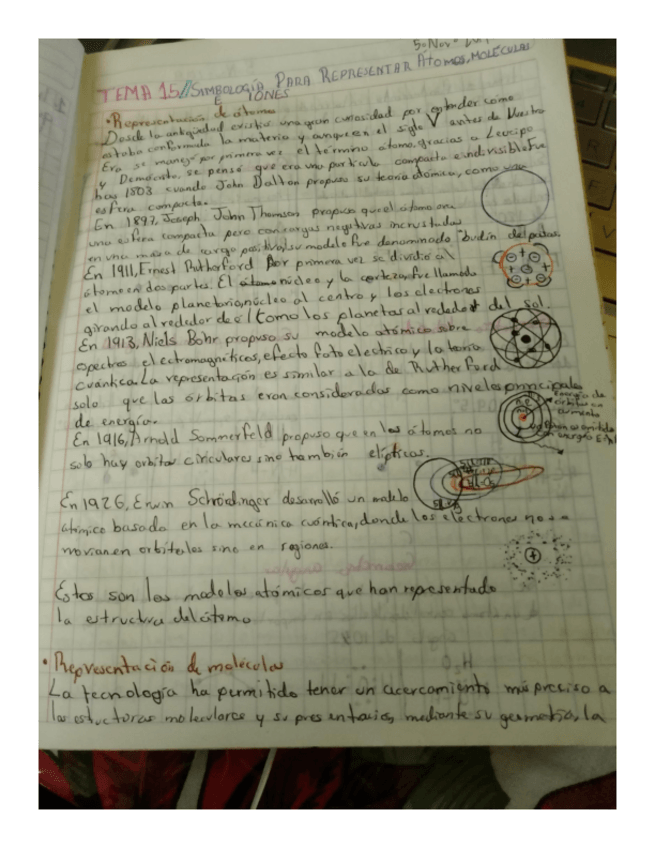 5-Nov-
TEMA 15// SIMBOLOGÍA PARA REPRESENTAR ÁTOMOS, MOLÉCULAS
E IONES
• Representación de átomos
Desde la antigüedad existía una gran curiosidad por entender como
estaba conformada la materia y aunque en el siglo V antes de Nuestra
Era se manejó por primera vez el término átomo, gracias a Leucipo
y Demócrito, se pensó que era una partícula compacta e indivisible. Fue
hay 1803 cuando John Dalton propuso su teoría atómica, como una
esfera compacta.
En 1897, Joseph John Thomson propuso que el átomo era
una esfera compacta pero con cargas negativas incrustadas
en una masa de carga positiva, su modelo fue denominado "budín de pasas.
En 1911, Ernest Rutherford por primera vez se dividió al
átomo en dos partes. El núcleo y la corteza, fue llamado
el modelo planetario, núcleo al centro y los electrones
girando al rededor de él como los planetas al rededor del sol.
En 1913, Niels Bohr propuso su modelo atómico sobre
espectros electromagnéticos, efecto fotoelectrico y la teoría
cuántica. La representación es similar a la de Rutherford
solo que las órbitas eran consideradas como niveles principales
de energía.
Energía de
órbitas en
aumento
En 1916, Arnold Sommerfeld propuso que en los átomos no
solo hay orbitas circulares sino también elípticas.
En 1926, Erwin Schrödinger desarrolló un modelo
atómico basado en la mecánica cuántica, donde los electrones no se
movian en orbitales sino en regiones.
Estos son los modelos atómicos que han representado
la estructura del átomo
• Representación de moléculas
La tecnología ha permitido tener un acercamiento más preciso a
las estructuras moleculares y su presentación, mediante su geometría, la